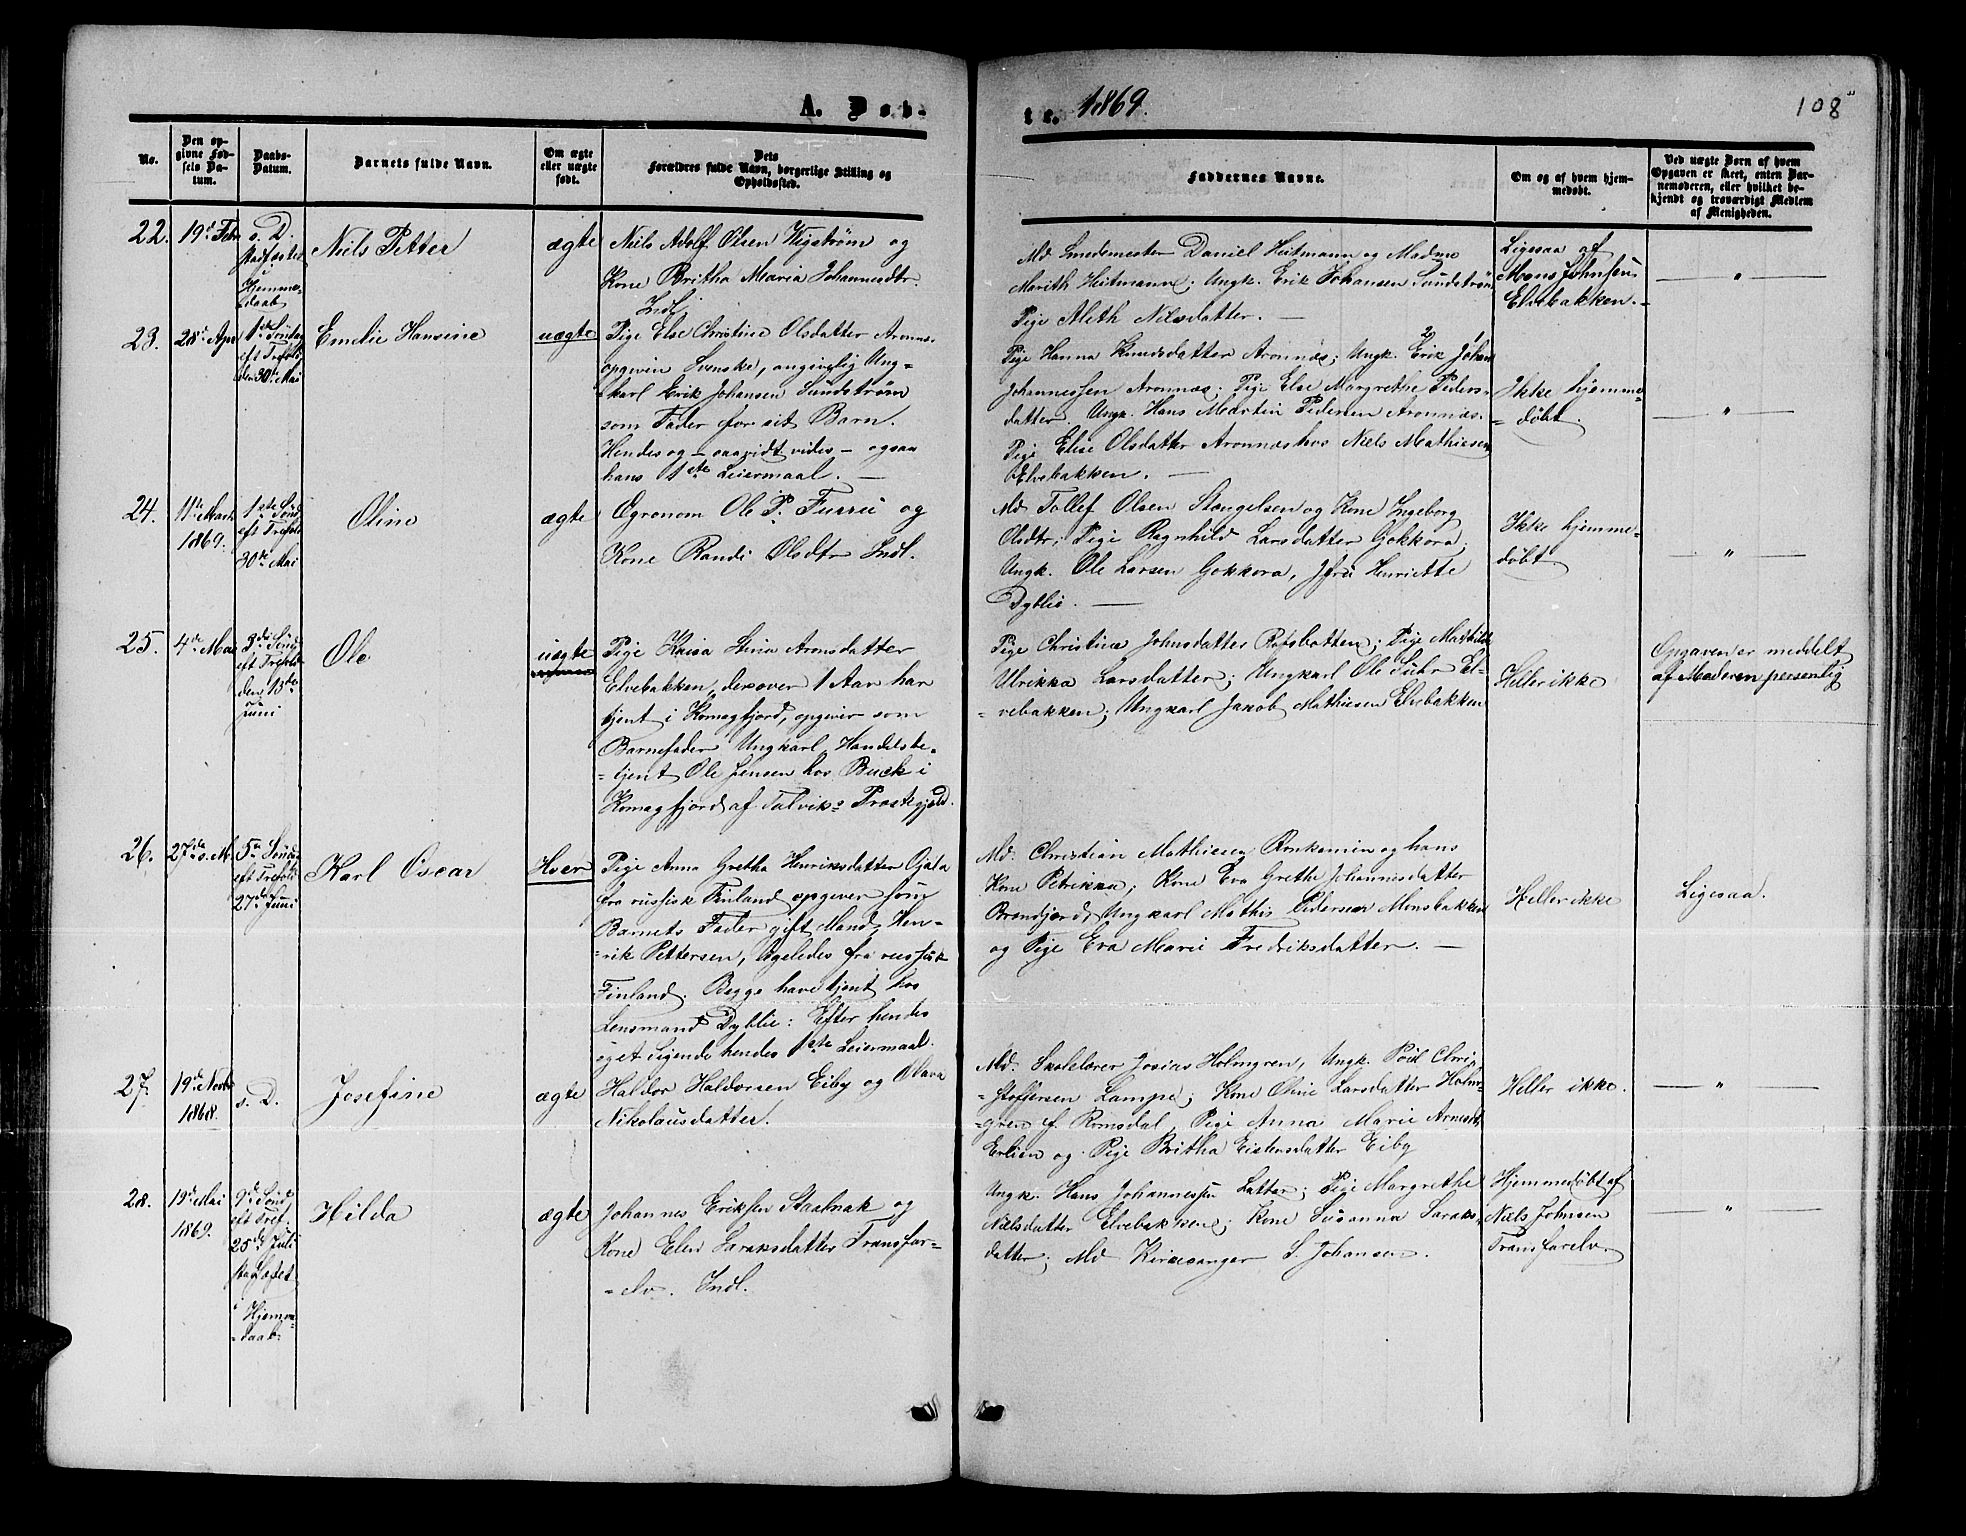 A. Døb-
te. 1869.
108
No.
Den op-
givne Fød-
sels Da-
tum.
Daabs-
Datum.
Barnets fulde Navn.
Om ægte
eller uægte
født.
Dets
Forældres fulde Navn, borgerlige Stilling og
Opholdssted.
Faddernes Navne.
Om og af hvem hjem-
medøbt.
Ved uægte Børn af hvem
Opgaven er skeet, enten Bar-
nemoderen, eller hvilket be-
kjendt og troværdigt Medlem
af Menigheden.
22.
19de Febr
s. D.
stadfæstet
Hjemme-
daab
Niels Petter
ægte
Niels Adolf Olsen Wigstrøm og
Kone Britha Maria Johannesdtr.
Indl.
Md Smedemester Daniel Heitmann og Madme
Marith Heitmann; Ungk. Erik Johansen Sundstrøm
Pige Aleth Nilsdatter. —
Ligesaa af
Mons Johnsen
Elvebakken. —
— " —
23.
28de Apr
1ste Søndag
eft Trefold
den 30te Mai
Emelie Hansine
uægte
Pige Else Christine Olsdatter Aronnæs.
opgiven Svenske, angivelig Ung-
karl Erik Johansen Sundstrøm
som Fader for sit Barn.
Hendes og — saavidt vides — ogsaa
hans 1ste Leiermaal. —
Pige Hanna Knudsdatter Aronnæs; Ungk. Erik Johan
Johannessen Aronnæs; Pige Else Margrethe Peders-
datter. Ungk. Hans Martin Pedersen Aronnæs.
Pige Elise Olsdatter Aronnæs hos Niels Mathiesen
Elvebakken. —
Ikke hjemme-
=døbt.
— " —
24.
11te Marts
1869.
1ste Sønd
eft Trefold
30te Mai
Oline
ægte
Ögronom Ole P. Furru og
Kone Randi Olsdtr Indl.
Md Tollef Olsen Stengelsen og Kone Ingeborg
Olsdtr; Pige Ragnhild Larsdatter Gokkora;
Ungk. Ole Larsen Gokkora, Jfru Henriette
Dyblie. —
Ikke hjemme-
døbt.
— " —
25.
4de Mai
3die Sønd
eft Trefold
den 13de
Juni
Ole
uægte
Pige Kaisa Stina Aronsdatter
Elvebakken, der over 1 Aar har
tjent i Komagfjord, opgiver som
Barnefader Ungkarl, Handelsbe-
=tjent Ole Jensen hos Buck i
Komagfjord af Talviks Præstegjeld.
Pige Christine Johnsdatter Rafsbotten; Pige Mathilde
Ulrikka Larsdatter; Ungkarl Ole Suhr El-
=vebakken; Ungkarl Jakob Mathiesen Elvebakken
Heller ikke
Opgaven er meddelt
af Moderen personlig
26.
27de s. M.
5te Søndag
eft Trefold
27de Juni
Karl Oscar
Hoer
Pige Anna Gretha Henriksdatter Ojala
fra russisk Finland opgiver som
Barnets Fader gift Mand, Hen-
=rik Pettersen, ligeledes fra russisk
Finland. Begge have tjent hos
Lensmand Dyblie: Efter hendes
eget Sigende hendes 1ste Leiermaal.
Md. Christian Mathiesen Ronkamin og hans
Kone Petrikka; Kone Eva Grethe Johannesdatter
Brandfjord, Ungkarl Mathis Pedersen Monsbakken
og Pige Eva Marie Fredriksdatter. —
Heller ikke
Ligesaa.
27.
19de Novbr
1868.
s. D.
Josefine
ægte
Haldor Haldorsen Eiby og Olava
Nikolausdatter.
Md. Skolelærer Josias Holmgren, Ungk. Poul Chri-
=stoffersen Lampe; Kone Oline Larsdatter Holm-
=gren f. Romsdal, Pige Anna Marie Arnesdt
Erlien og Pige Britha Eistensdatter Eiby
Heller ikke.
— " —
28.
19de Mai
1869.
9de Sønd
eft Tref.
25de Juli
stadfæstet
Hjemme-
=daab-
Hilda
ægte
Johannes Eriksen Staabnak og
Kone Elen Saraksdatter Transfar-
=elv. Indl.
Ungk. Hans Johannessen Latter; Pige Margrethe
Nielsdatter Elvebakken; Kone Susanna Saraks-
datter; Md Kirkesanger S. Johansen.
Hjemmedøbt af
Niels Johnsen
Transfarelv.
— " —